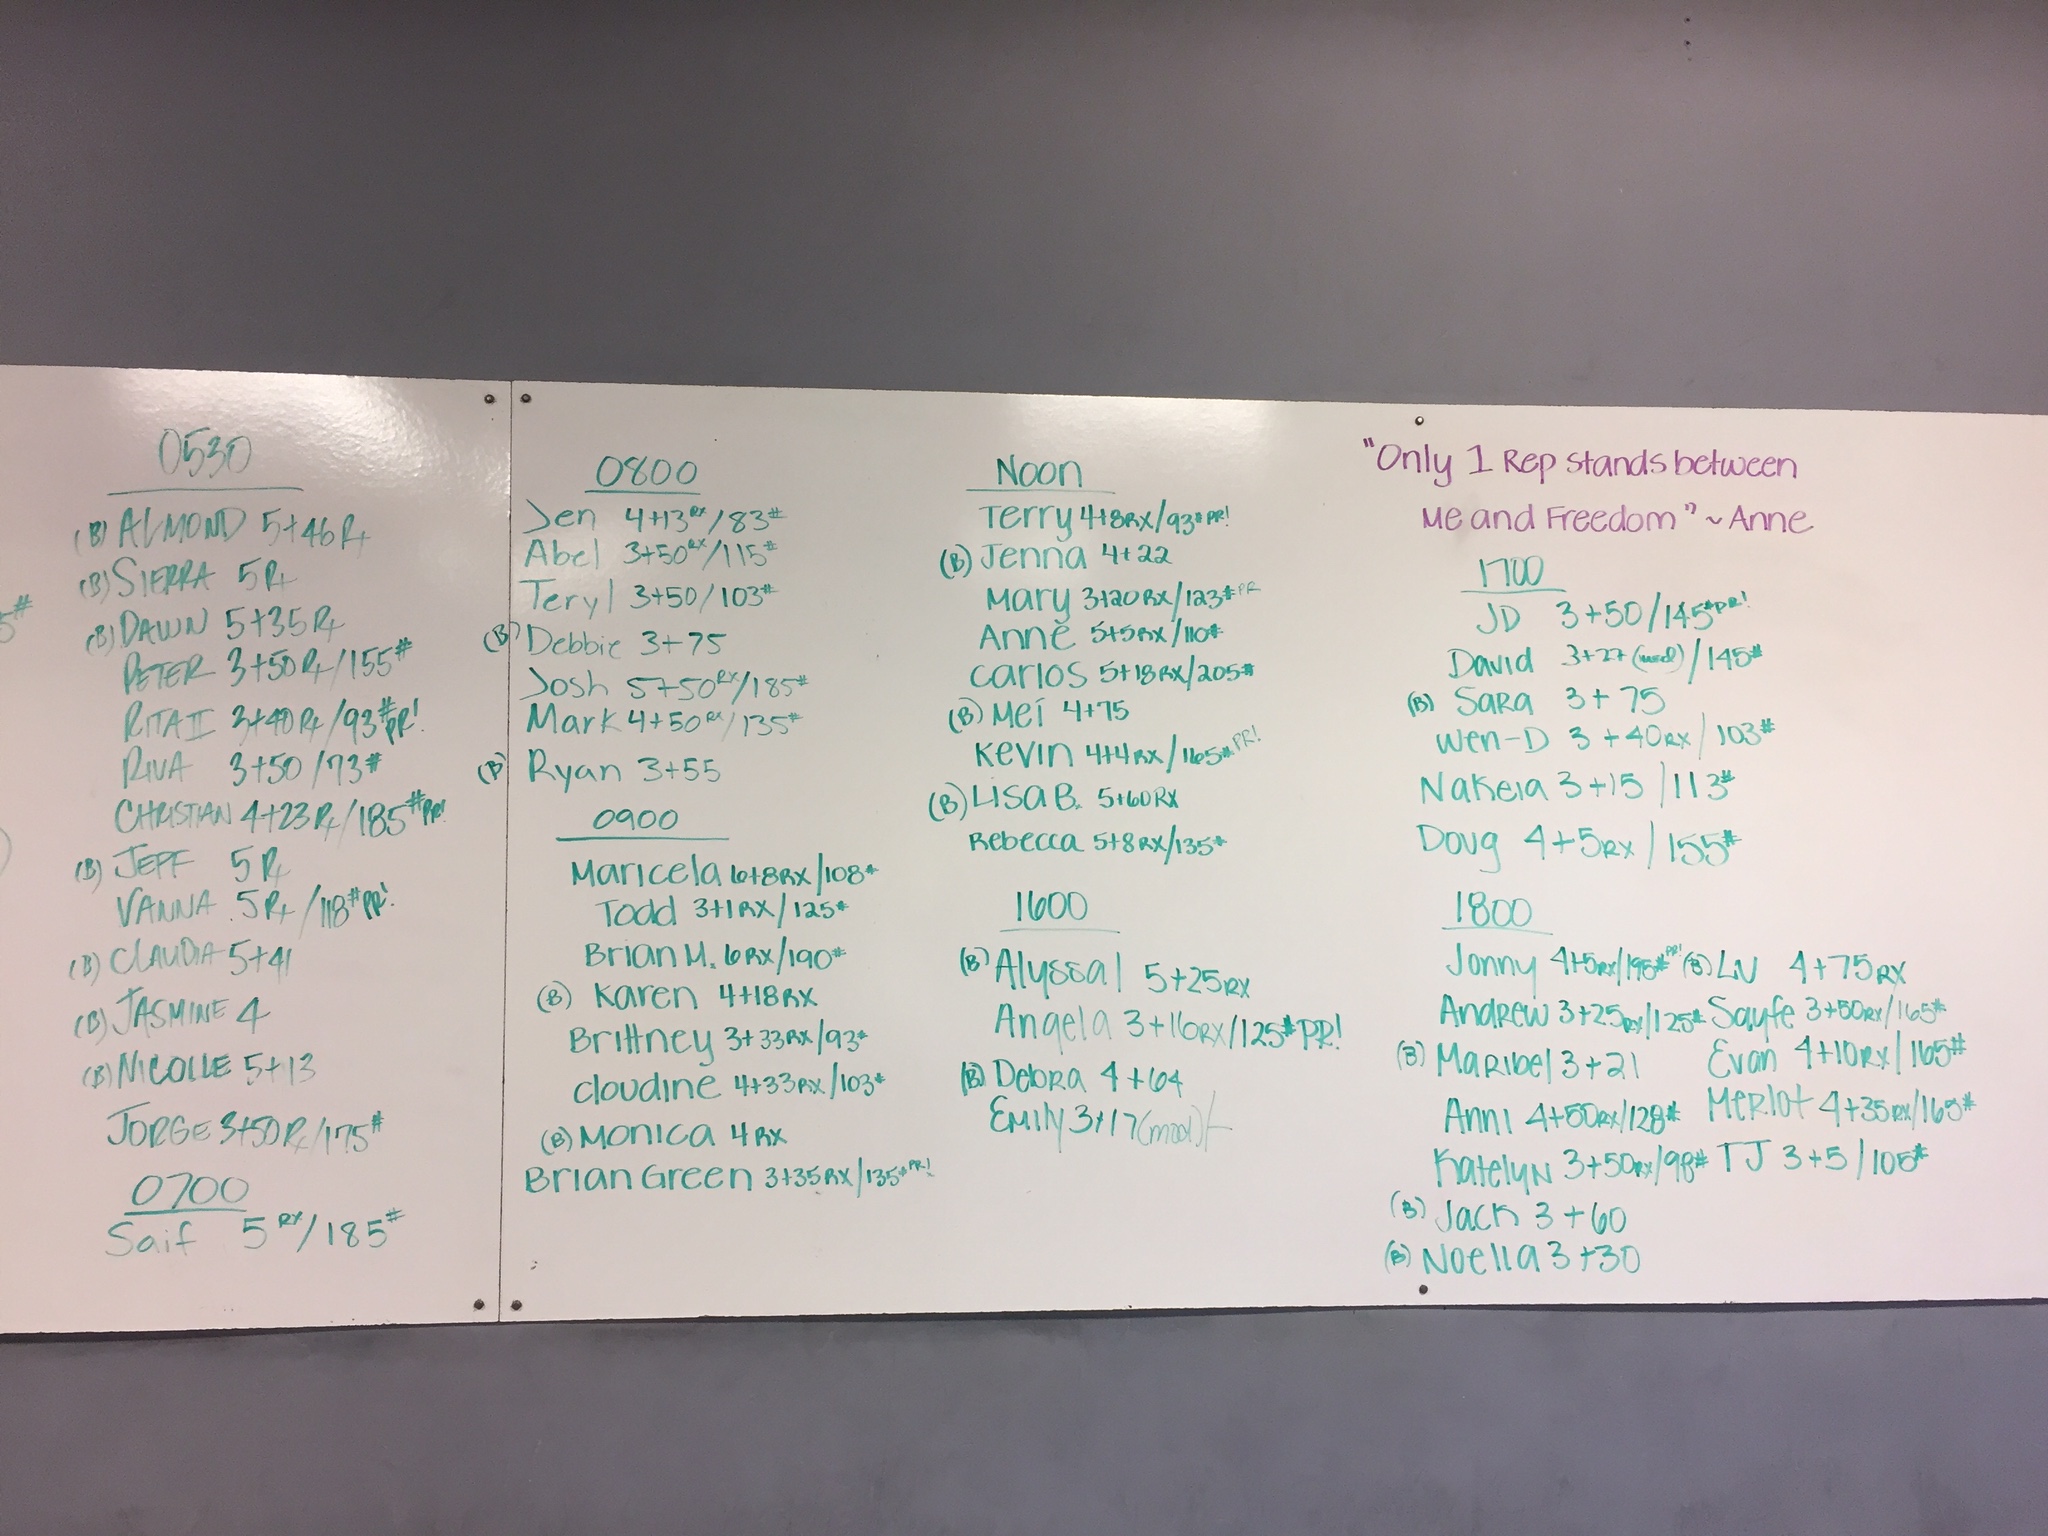 5#
0530
(B) ALMOND 5+46 Rx
(B) SIERRA 5 Rx
(B) DAWN 5+35 Rx
PETER 3+50 Rx/155#
RITA II 3+40 Rx/93# PR!
RIVA 3+50/73#
CHRISTIAN 4+23 Rx/185# PR!
(B) JEFF 5 Rx
VANNA 5 Rx/118# PR!
(B) CLAUDIA 5+41
(B) JASMINE 4
(B) NICOLLE 5+13
JORGE 3+50 Rx/175#
0700
Saif 5 RX/185#
0800
Jen 4+13 RX/83#
Abel 3+50 RX/115#
Teryl 3+50/103#
(B) Debbie 3+75
Josh 5+50 RX/185#
Mark 4+50 RX/135#
(B) Ryan 3+55
0900
Maricela 6+8RX/108#
Todd 3+1RX/125#
Brian M. 6RX/190#
(B) Karen 4+18RX
Brittney 3+33RX/93#
Cloudine 4+33RX/103#
(B) Monica 4RX
Brian Green 3+35RX/135# PR!
Noon
Terry 4+8RX/93# PR!
(B) Jenna 4+22
Mary 3+20RX/123# PR
Anne 5+5RX/110#
Carlos 5+18RX/205#
(B) Mei 4+75
Kevin 4+4RX/165# PR!
(B) Lisa B. 5+60RX
Rebecca 5+8RX/135#
1600
(B) Alyssa 5+25RX
Angela 3+16RX/125# PR!
(B) Debra 4+64
Emily 3+17(mod)/-
"Only 1 Rep stands between
Me and Freedom" ~ Anne
1700
JD 3+50/145# PR!
David 3+27 (mod)/145#
(B) Sara 3+75
Wen-D 3+40RX/103#
Nakeia 3+15/113#
Doug 4+5RX/155#
1800
Jonny 4+5RX/195# PR!
Andrew 3+25RX/125#
(B) Maribel 3+21
Anni 4+50RX/128#
Katelyn 3+50RX/98#
(B) Jack 3+60
(B) Noella 3+30
(B) LN 4+75RX
Sayfe 3+50RX/165#
Evan 4+10RX/165#
Merlot 4+35RX/165#
TJ 3+5/105#